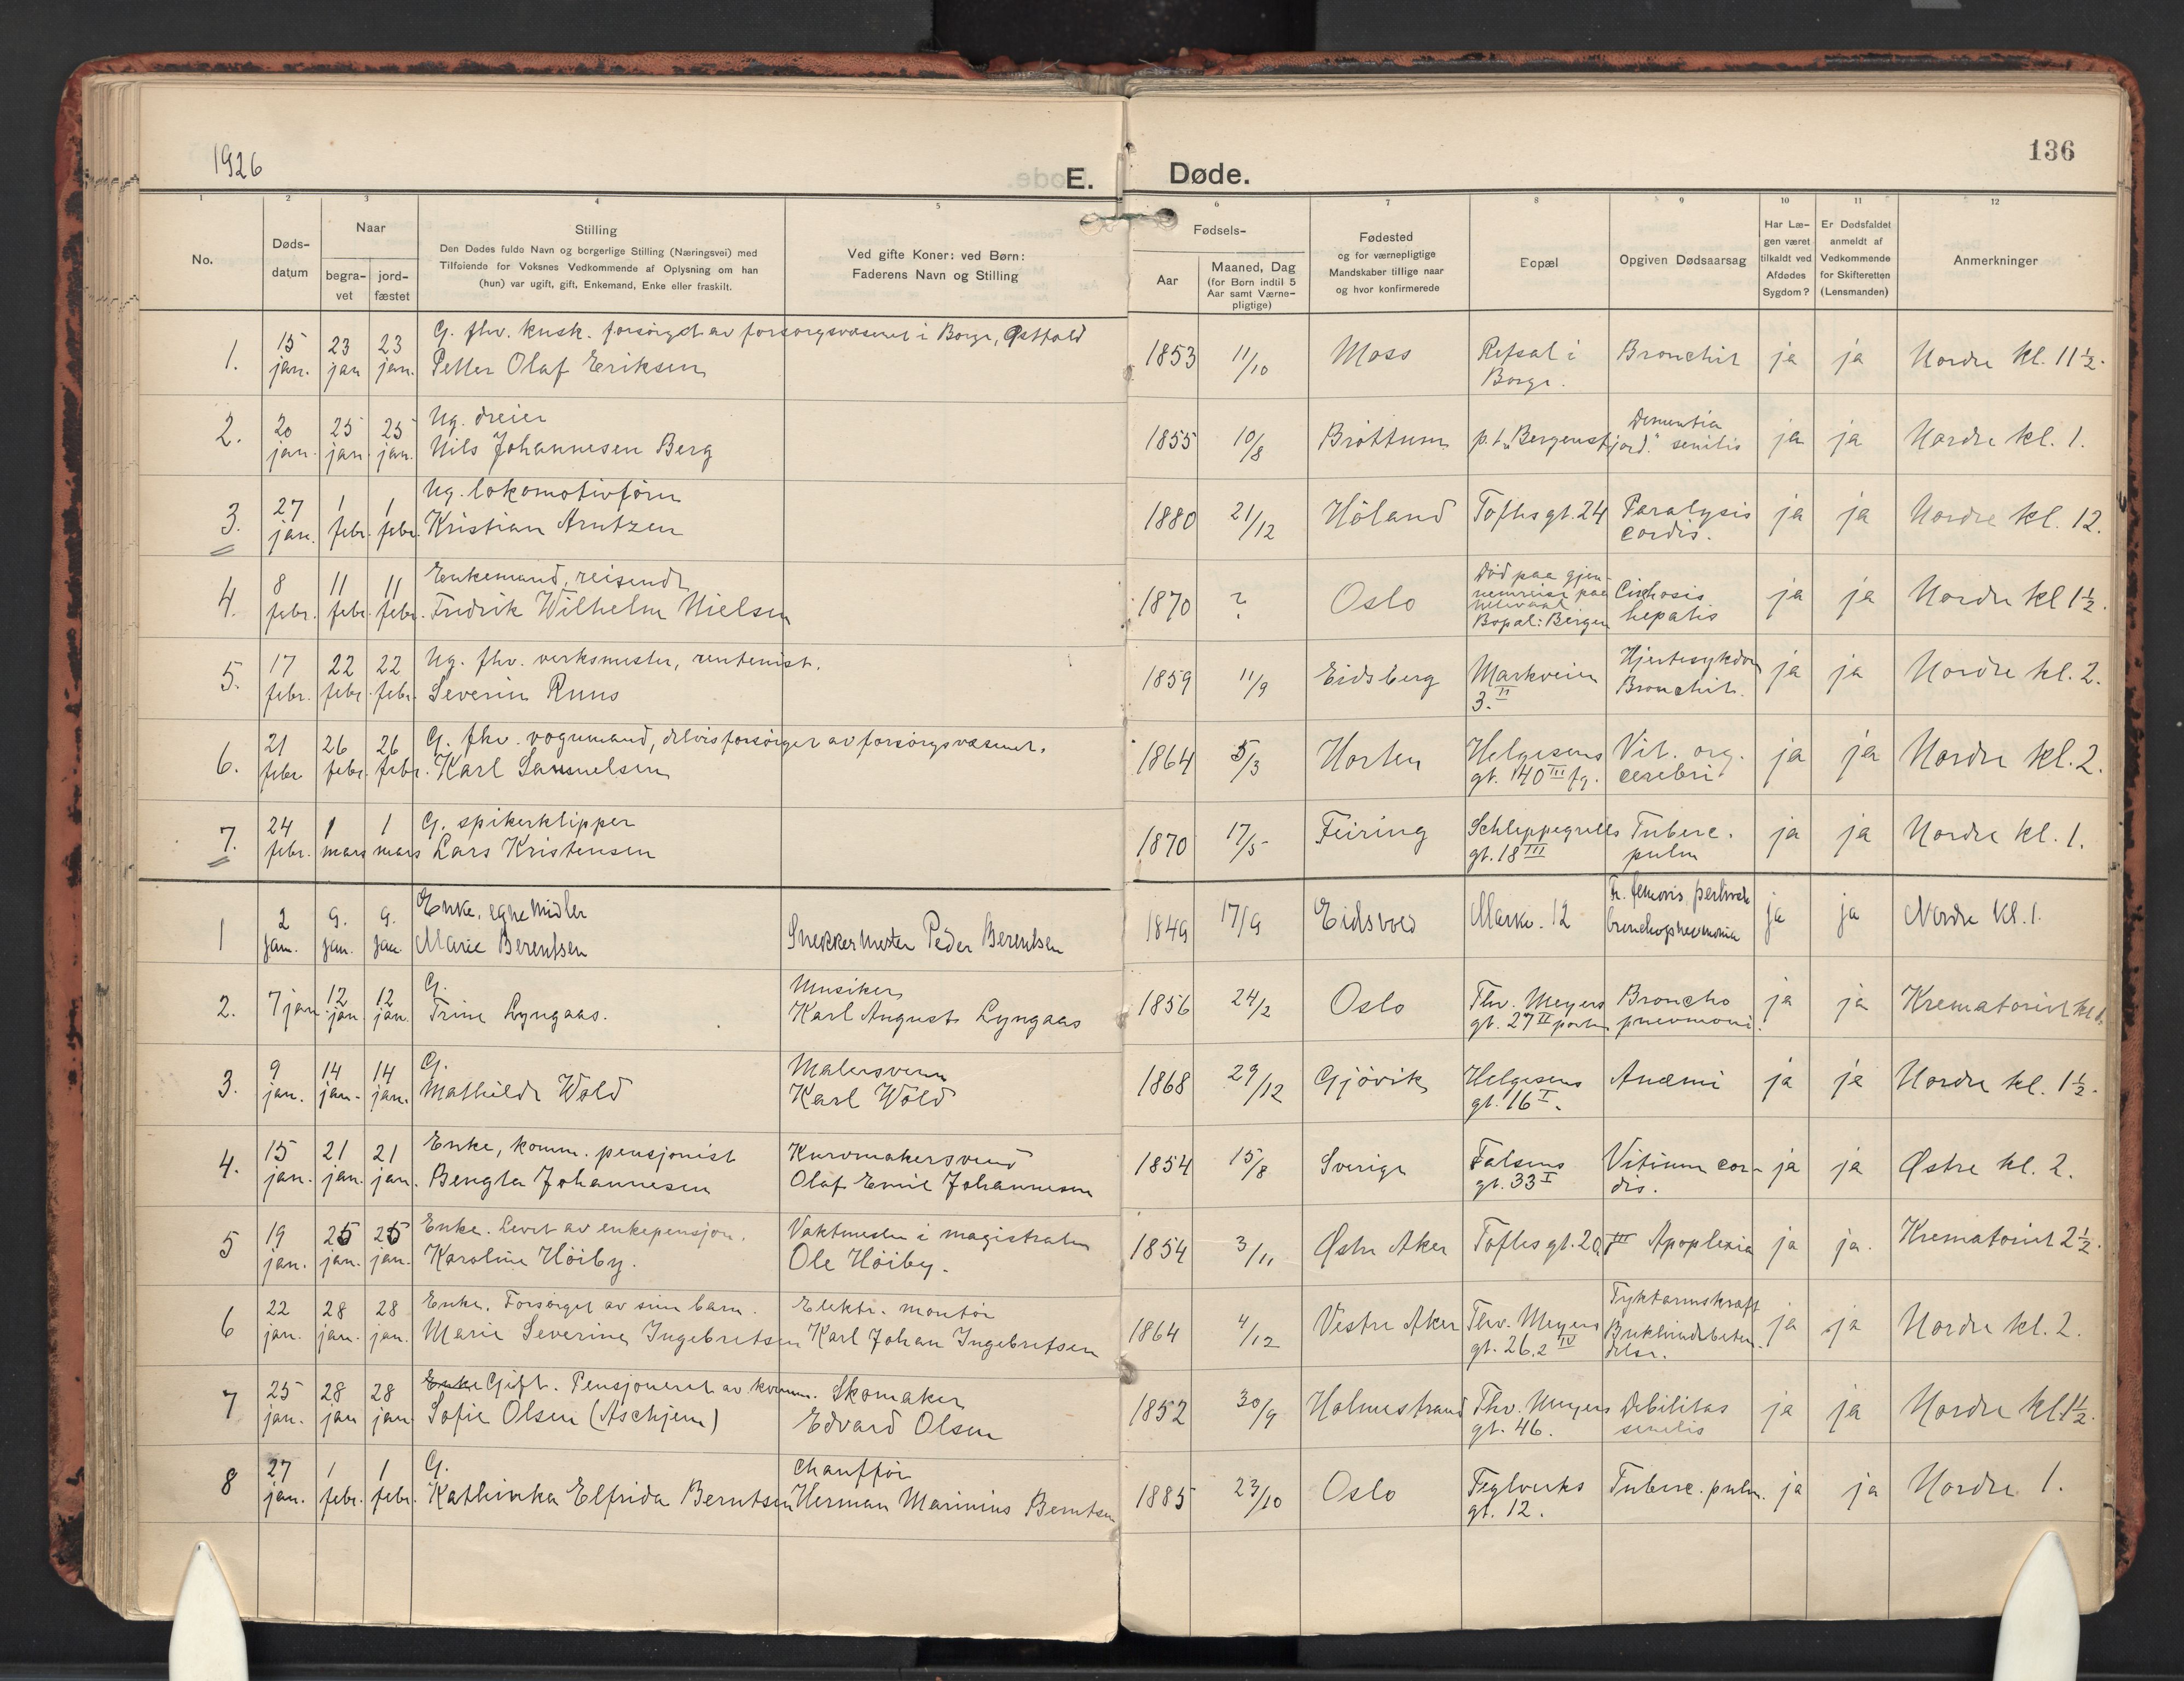 1926
E. Døde.
136
1 2 3 4 5 6 7 8 9 10 11 12
No.
Døds-datum
Naar
begra-vet
jord-fæstet
Stilling
Den Dødes fulde Navn og borgerlige Stilling (Næringsvei) med
Tilføiende for Voksnes Vedkommende af Oplysning om han
(hun) var ugift, gift, Enkemand, Enke eller fraskilt.
Ved gifte Koner: ved Børn:
Faderens Navn og Stilling
Fødsels-
Aar
Maaned, Dag
(for Børn indtil 5
Aar samt Værne-
pligtige)
Fødested
og for værnepligtige
Mandskaber tillige naar
og hvor konfirmerede
Bopæl
Opgiven Dødsaarsag
Har Læ-
gen været
tilkaldt ved
Afdødes
Sygdom?
Er Dødsfaldet
anmeldt af
Vedkommende
for Skifteretten
(Lensmanden)
Anmerkninger
1. 15 jan. 23 jan 23 jan. G. fhv. kusk. forsørget av forsorgsvæsenet i Borge, Østfold
Petter Olaf Eriksen 1853 11/10 Moss Refsal i Borge. Bronchit ja ja Nordre kl. 11½.
2. 20 jan. 25 jan. 25 jan. Ug. dreier
Nils Johannesen Berg 1855 10/8 Bröttum p.t. "Bergenstjord." Dementia senilis ja ja Nordre kl. 1.
3. 27 jan. 1 febr. 1 febr. Ug. lokomotivförer
Kristian Arntzen 1880 21/12 Höland Toftesgt. 24 Paralysis cordis. ja ja Nordre kl. 12.
4. 8 febr. 11 febr. 11 febr. Enkemand, reisende
Fredrik Wilhelm Nielsen 1870 ? Oslo Død paa gjennemreise paa Bopæl: Bergen Cirrhosis hepatis ja ja Nordre kl 1½.
5. 17 febr. 22 febr. 22 febr. Ug. fhv. verksmester, rentenist.
Severin Ruus 1859 11/9 Eidsberg Markveien 3. II Hjertesykdom Bronchit. ja ja Nordre kl. 2.
6. 21 febr 26 febr. 26 febr. G. fhv. vognmand, delvis forsörget av forsörgsvæsenet.
Karl Samuelsen 1864 5/3 Horten Helgesens gt. 40 III fg. Vit. org. cerebri ja ja Nordre kl. 2.
7. 24 febr. 1 mars 1 mars G. spikerklipper
Lars Kristensen 1870 17/5 Feiring Schleppegrells gt. 18 III Tuberc. pulm ja ja Nordre kl. 1.
1 2 jan. 9. jan. 9. jan. Enke, egne Midler
Marie Berentsen Snekkermester Peder Berentsen 1849 17/9 Eidsvold Markv. 12 Fr. femoris bronchopneumonia ja ja Nordre Kl. 1.
2. 7 jan 12 jan. 12 jan. G. Musiker
Trine Lyngaas. Karl August Lyngaas 1856 24/2 Oslo Thv. Meyers gt. 27 II Broncho pneumoni. ja ja Krematoriet kl 1.
3. 9 jan. 14 jan. 14 jan. G. Malersvenn
Mathilde Wold Karl Wold 1868 29/12 Gjövik Helgesens gt. 16 I. Anæmi ja ja Nordre kl. 1½.
4. 15 jan. 21 jan. 21 jan. Enke, komm. pensjonist Kurvmakersvend
Bengta Johannesen Olaf Emil Johannesen 1854 15/8 Sverige Falsens gt. 33 I Vitium cordis. ja ja Østre kl. 2.
5 19 jan. 25 jan. 25 jan. Enke. Levet av enkepensjon. Vaktmester i magistraten
Karoline Höiby. Ole Höiby. 1854 3/11 Østre Aker Toftesgt. 20 III Apoplexia ja ja. Krematoriet 2½.
6 22 jan. 28 jan. 28 jan. Enke. Forsørget av sine barn. Elektr. montör
Marie Severine Ingebretsen Karl Johan Ingebretsen 1864 4/12 Vestre Aker Thv. Meyers gt. 26.2 IV Tyktarmskræft Bukhindebetendelse. ja ja Nordre kl. 2.
7 25 jan. 28 jan 28 jan Enke Gift. Pensjoneret av komm. Skomaker
Sofie Olsen (Aschjem) Edvard Olsen 1852 30/9 Holmestrand Thv. Meyers gt. 46. Debilitas senilis ja ja Nordre kl. 1½.
8 27 jan. 1 febr. 1 febr. G. Chaufför
Kathinka Elfrida Berntsen Herman Marinius Berntsen 1885 23/10 Oslo Teglverks gt. 12. Tuberc. pulm. ja ja Nordre 1.